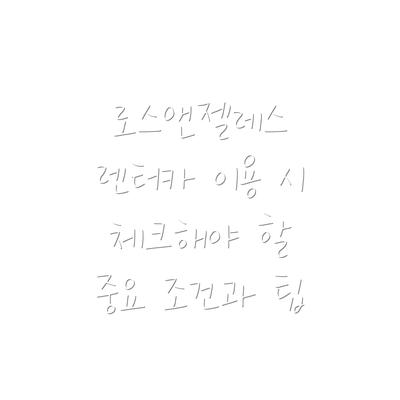 로스앤젤레스
렌터카 이용 시
체크해야 할
중요 조건과 팁